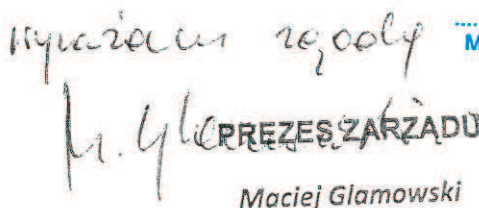 wyrażam zgodę
M
M. Glamowski
PREZES ZARZĄDU
Maciej Glamowski